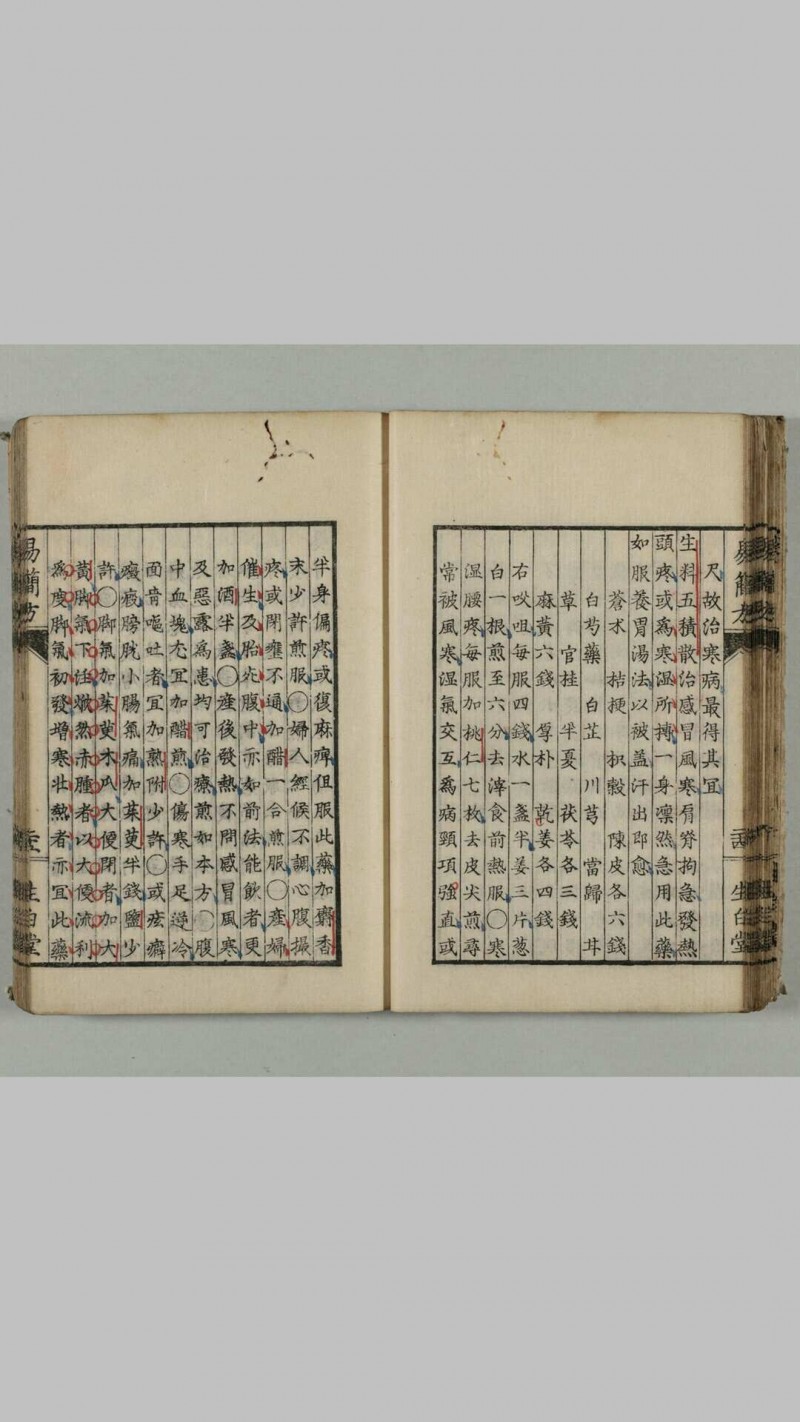 尺故治寒病最得其宜
生料五積散治感冒風寒肩脊拘急發熱
頭疼或為寒濕所摶一身凛然急用此藥
如服養胃湯法以被盖汗出即愈
蒼术 桔梗 枳殼 陳皮各六錢
白芍藥 白芷 川芎 當歸 甘
草 官桂 半夏 茯苓各三錢
麻黄六錢 厚朴 乾姜各四錢
右㕮咀每服四錢水一盞半姜三片葱
白一根煎至六分去滓食前熱服〇寒
濕腰疼每服加桃仁七枚去皮尖煎尋
常被風寒濕氣交互為病頸項強直或
半身偏疼或復麻痺但服此藥加麝香
末少許煎服〇婦人經候不調心腹撮
疼或閉壅不通加醋一合煎服〇産婦
催生及胎死腹中亦如前法能飲者更
加酒半盞〇産後發熱不問感冒風寒
及惡露為患均可治療煎如本方〇腹
中血塊尤宜加醋煎〇傷寒手足逆冷
面青嘔吐者宜加熟附少許〇或痃癖
癥瘕膀胱小腸氣痛加茱萸半錢鹽少
許〇脚氣加茱萸木瓜大便閉者加大
黄脚氣下注焮然赤腫者以大便流利
為度脚氣初發増寒壯熱者亦宜此藥
易簡方
生白堂